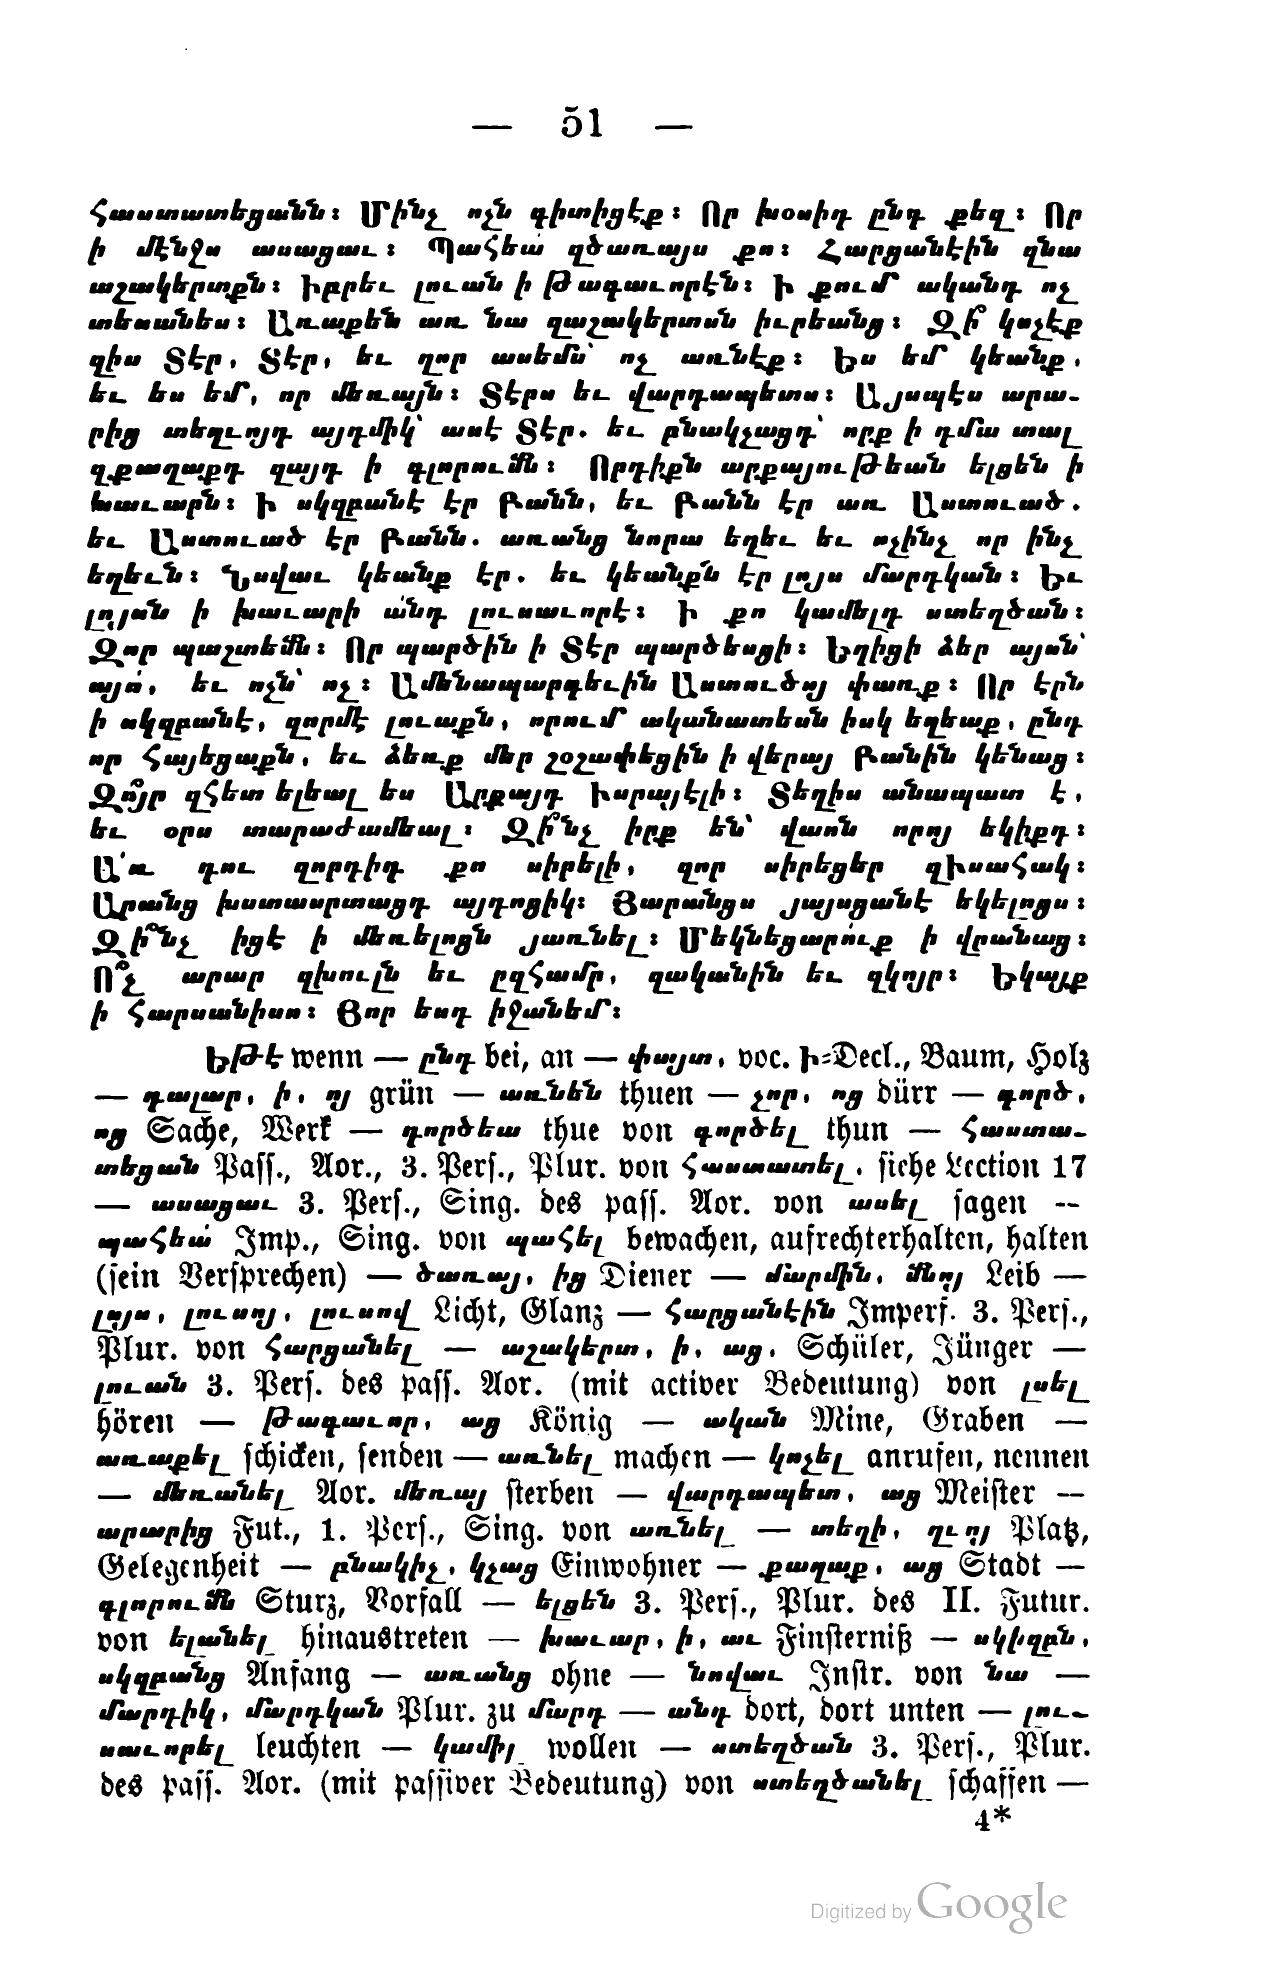 — 51 —
Հաստատեցանն։ Մինչ ոչն գիտիցէք։ Որ խօսիդ ընդ քեզ։ Որ
ի մէնջս ասացաւ։ Պահեա՛ զծառայս քո։ Հարցանէին զնա
աշակերտքն։ Իբրեւ լուան ի Թագաւորէն։ Ի քում ականդ ոչ
տեսանես։ Առաքեն առ նա զաշակերտսն իւրեանց։ Զի՞ կոչէք
զիս Տէր, Տէր, եւ զոր ասեմս՝ ոչ առնէք։ Ես եմ կեանք,
եւ ես եմ, որ մեռայն։ Տէրս եւ վարդապետս։ Այսպէս արա-
րից տեղւոյդ այդմիկ՝ ասէ Տէր. եւ բնակչացդ՝ որք ի դմա տալ
զքաղաքդ զայդ ի գլորումն։ Որդիքն արքայութեան ելցեն ի
խաւարն։ Ի սկզբանէ էր Բանն, եւ Բանն էր առ Աստուած.
եւ Աստուած էր Բանն. առանց նորա եղեւ եւ ոչինչ որ ինչ
եղեւն։ Նովաւ կեանք էր. եւ կեանք՛ն էր լոյս մարդկան։ Եւ
լոյսն ի խաւարի ա՛նդ լուսաւորէ։ Ի քո կամելդ ստեղծան։
Զոր պաշտեմն։ Որ պարծին ի Տէր պարծեսցի։ Եղիցի ձեր այոն՝
այո՛, եւ ոչն՝ ոչ։ Ամենապարգեւին Աստուծոյ փառք։ Որ էրն
ի սկզբանէ, զորմէ լուաքն, որում ականատեսն իսկ եղեաք, ընդ
որ Հայեցաքն, եւ ձեռք մեր շօշափեցին ի վերայ Բանին կենաց։
Զո՞յր զՀետ ելեալ ես Արքայդ Իսրայէլի։ Տեղիս անապատ է,
եւ օրս տարաժամեալ։ Զի՞նչ իրք են՝ վասն որոյ եկիքդ։
Ա՛ռ դու զորդիդ քո սիրելի, զոր սիրեցեր զԻսահակ։
Արանց խստասրտացդ այդոցիկ։ Յարանցս յայսցանէ եկելոցս։
Զի՞նչ իցէ ի մեռելոցն յառնել։ Մեկնեցարո՛ւք ի վրանաց։
Ո՞չ արար զխուլն եւ ըզՀամր, զականին եւ զկոյր։ Եկայք
ի Հարսանիսս։ Յոր եսդ իջանեմ։
Եթէ wenn — ընդ bei, an — փայտ, voc. ի=Decl., Baum, Holz
— դալար, ի, ոյ grün — առնեն thuen — չոր, ոց dürr — գործ,
ոց Sache, Werk — գործեա thue von գործել thun — Հաստա-
տեցան Pass., Aor., 3. Pers., Plur. von Հաստատել, siehe Lection 17
— ասացաւ 3. Pers., Sing. des pass. Aor. von ասել sagen —
պահեա՛ Imp., Sing. von պահել bewachen, aufrechterhalten, halten
(sein Versprechen) — ծառայ, ից Diener — մարմին, մնոյ Leib —
լոյս, լուսոյ, լուսով Licht, Glanz — Հարցանէին Imperf. 3. Pers.,
Plur. von Հարցանել — աշակերտ, ի, աց, Schüler, Jünger —
լուան 3. Pers. des pass. Aor. (mit activer Bedeutung) von լսել
hören — Թագաւոր, աց König — ական Mine, Graben —
առաքել schicken, senden — առնել machen — կոչել anrufen, nennen
— մեռանել Aor. մեռայ sterben — վարդապետ, աց Meister —
արարից Fut., 1. Pers., Sing. von առնել — տեղի, ղւոյ Platz,
Gelegenheit — բնակիչ, կչաց Einwohner — քաղաք, աց Stadt —
գլորումն Sturz, Vorfall — ելցեն 3. Pers., Plur. des II. Futur.
von ելանել hinaustreten — խաւար, ի, աւ Finsterniß — սկիզբն,
սկզբանց Anfang — առանց ohne — նովաւ Instr. von նա —
մարդիկ, մարդկան Plur. zu մարդ — անդ dort, dort unten — լու-
սաւորել leuchten — կամիլ wollen — ստեղծան 3. Pers., Plur.
des pass. Aor. (mit passiver Bedeutung) von ստեղծանել schaffen —
4*
Digitized by Google